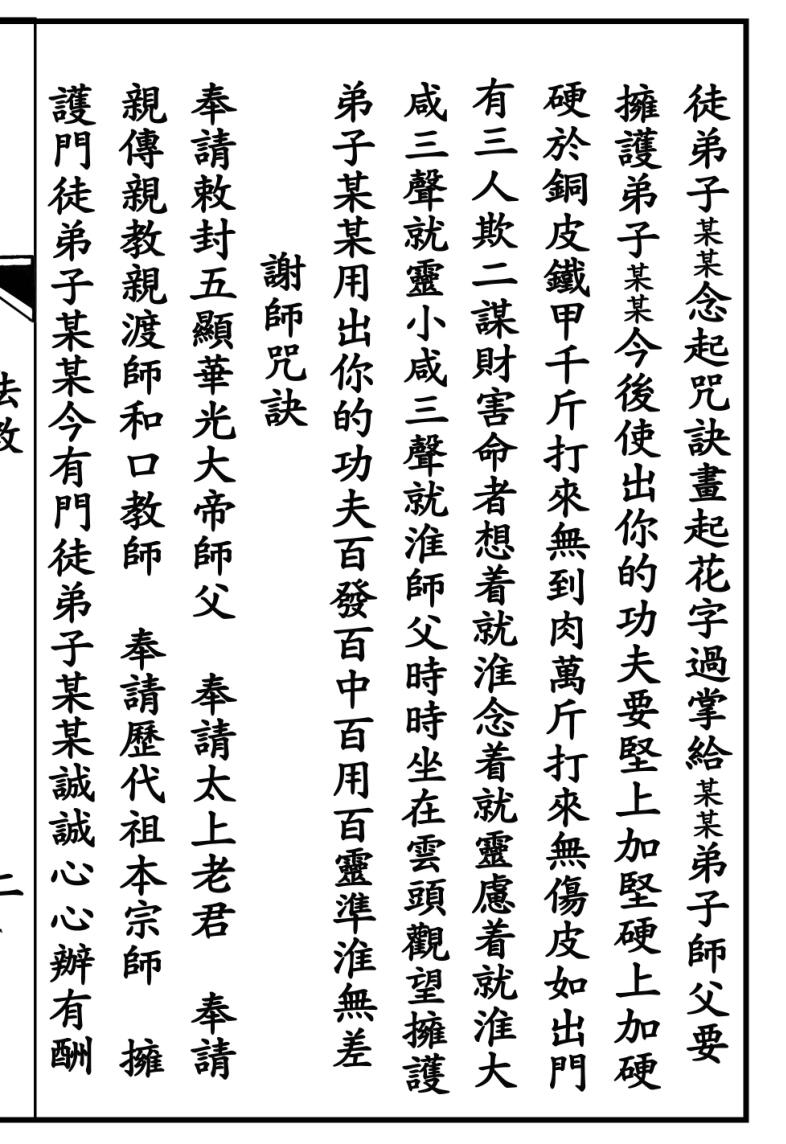 徒弟子某某念起咒訣畫起花字過掌給某某弟子師父要
擁護弟子某某今後使出你的功夫要堅上加堅硬上加硬
硬於銅皮鐵甲千斤打來無到肉萬斤打來無傷皮如出門
有三人欺二謀財害命者想着就淮念着就靈慮着就淮大
咸三聲就靈小咸三聲就淮師父時時坐在雲頭觀望擁護
弟子某某用出你的功夫百發百中百用百靈準淮無差
謝師咒訣
奉請敕封五顯華光大帝師父　奉請太上老君　奉請
親傳親教親渡師和口教師　奉請歷代祖本宗師　擁
護門徒弟子某某今有門徒弟子某某誠誠心心辦有酬
法教